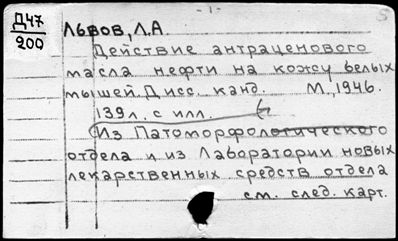 - 1 -
5
Д47
200
ЛЬВОВ, Л.А.
Действие антраценового
масла нефти на кожу белых
мышей. Дисс. канд. М., 1946.
139 л. с илл.
Из Патоморфологического
отдела и из Лаборатории новых
лекарственных средств отдела
см. след. карт.